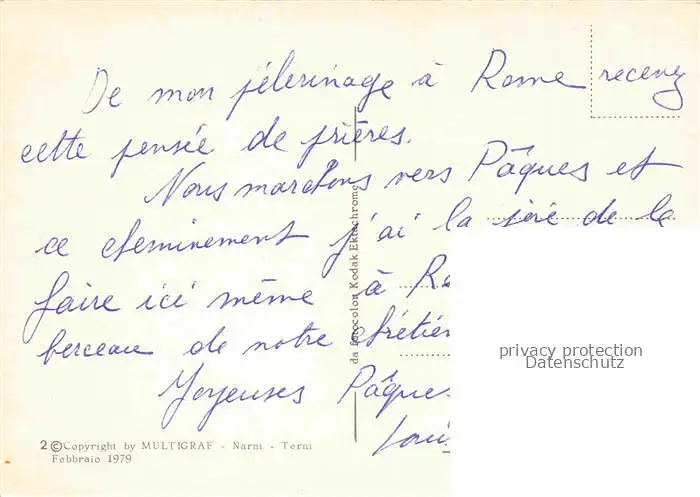 De mon pélerinage à Rome recevez
cette pensée de prières.
Nous marchons vers Pâques et
ce cheminement j'ai la joie de le
faire ici même à Ro
berceau de notre chrétien
Joyeuses Pâques
Loui
da fotocolor Kodak Ektachrome
privacy protection
Datenschutz
2 © Copyright by MULTIGRAF - Narni - Terni
Febbraio 1979